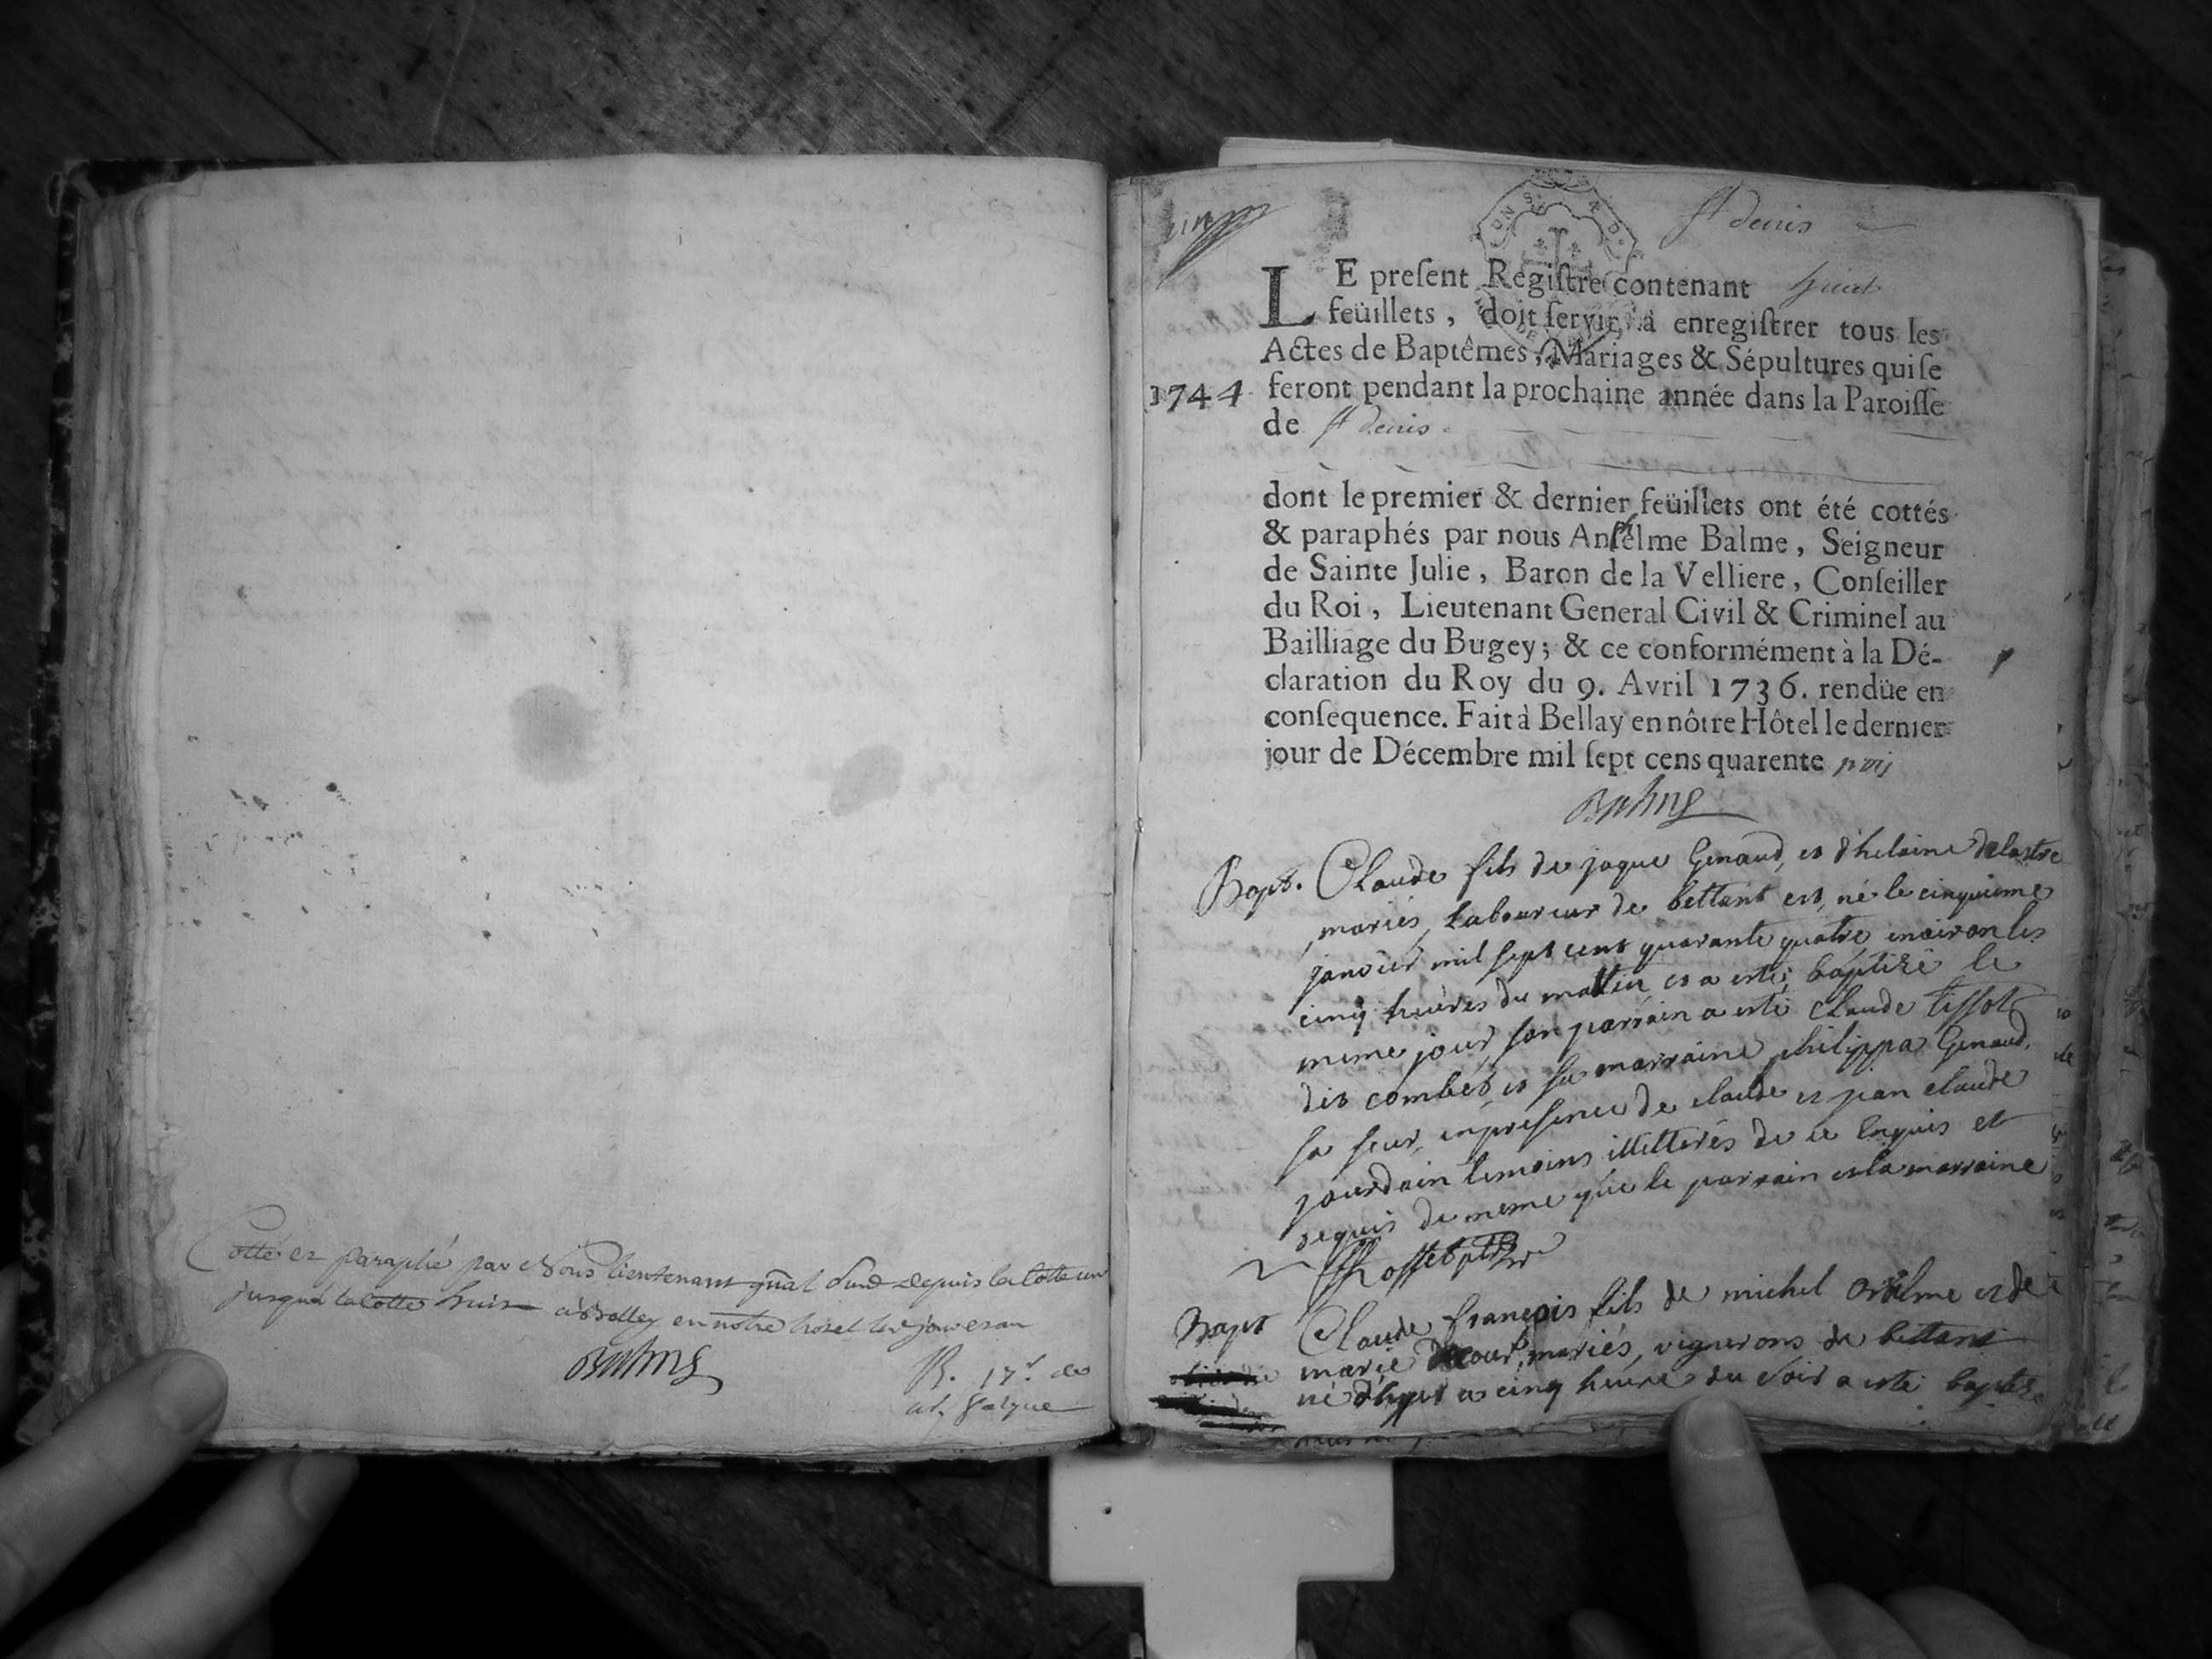 Cotté et paraphé par Nous lieutenant gñal sus. depuis la Cotte un
jusqua la Cotte huit à Belley en notre hotel les jour et an
Balme
R. 17 s. de
St denis
LE preſent Regiſtre contenant huict
feüillets, doit ſervir à enregiſtrer tous les
Actes de Baptêmes, Mariages & Sépultures qui ſe
1744 feront pendant la prochaine année dans la Paroiſſe
de St denis
dont le premier & dernier feüillets ont été cottés
& paraphés par nous Anſelme Balme, Seigneur
de Sainte Julie, Baron de la Velliere, Conſeiller
du Roi, Lieutenant General Civil & Criminel au
Bailliage du Bugey; & ce conformément à la Dé-
claration du Roy du 9. Avril 1736. rendüe en
conſequence. Fait à Bellay en nôtre Hôtel le dernier
jour de Décembre mil ſept cens quarente trois
Balme
Bapt. Claude fils de jaque Genaud, et d'helaine delastre
mariés, laboureur de bettant est, né le cinquieme
janvier mil sept cent quarante quatre environ les
cinq heures du matin et a esté baptizé le
meme jour, son parrain a esté Claude tissot
dit combet, et sa marraine philippa Genaud,
sa seur, en presence de claude et jean claude
jourdain temoins illitterés de ce Enquis et
requis de meme que le parrain et la marraine
Bapt Claude françois fils de michel et de
marie mariés, vignerons de bettant
né d'hyer a cinq heure du soir a esté baptizé